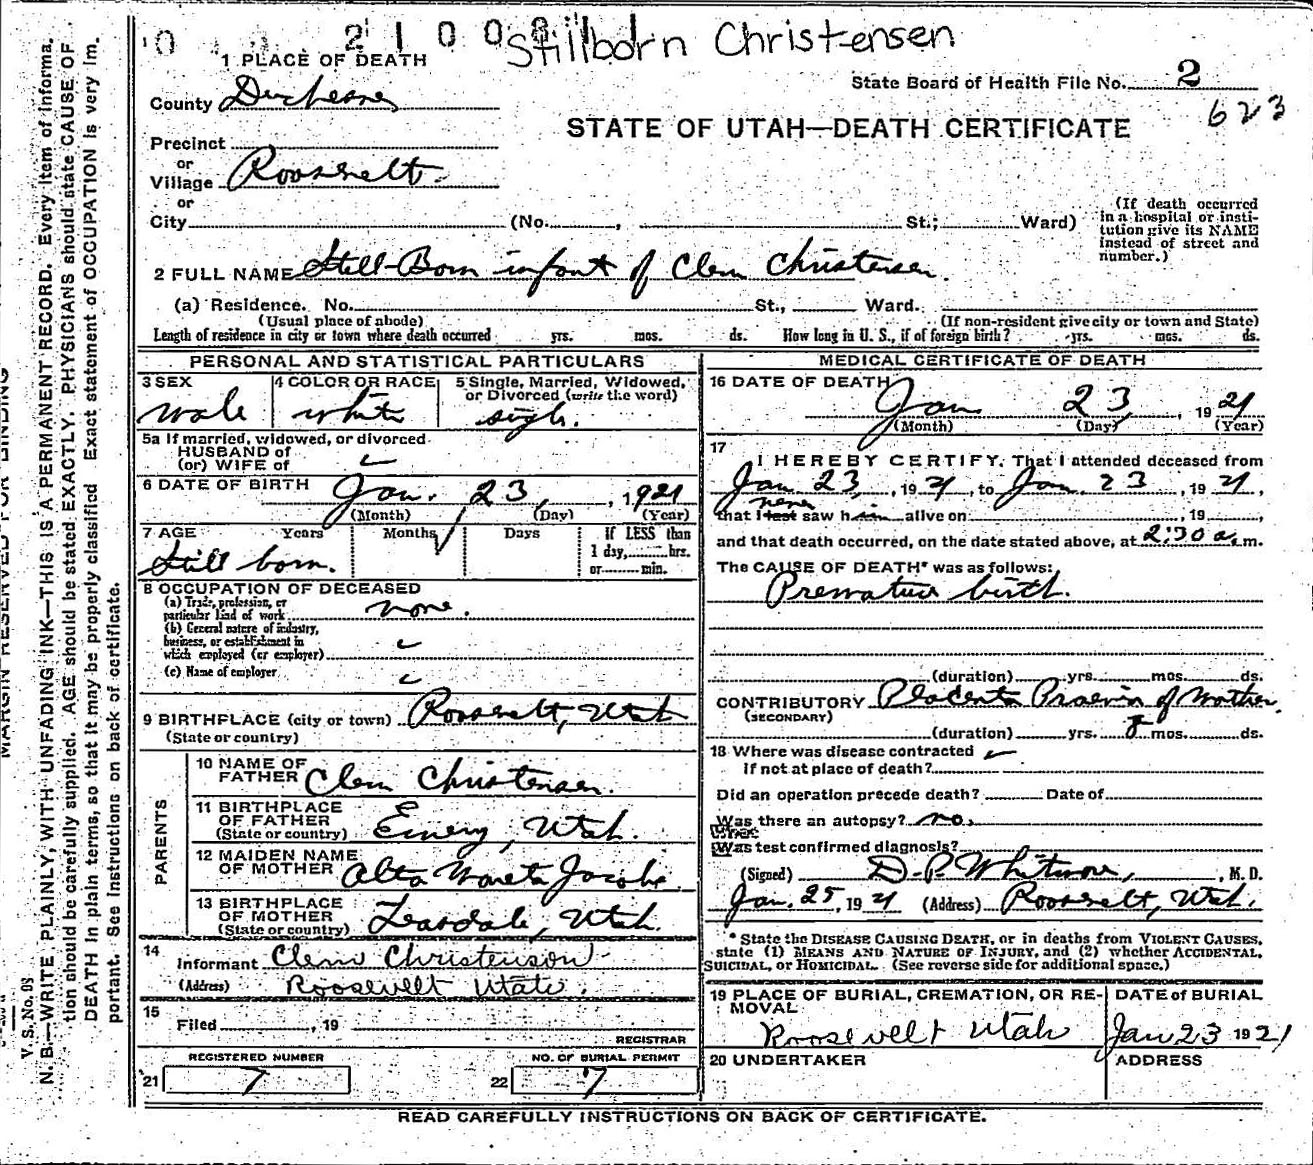 0 1 2 1 0 0 Stillborn Christensen
1 PLACE OF DEATH
State Board of Health File No. 2
County Duchesne
623
STATE OF UTAH—DEATH CERTIFICATE
Precinct
or
Village Roosevelt
or
City (No. , St.; Ward)
(If death occurred in a hospital or insti-
tution give its NAME
instead of street and
number.)
2 FULL NAME Still-Born infant of Clem Christensen.
(a) Residence. No. St., Ward.
(Usual place of abode) (If non-resident give city or town and State)
Length of residence in city or town where death occurred yrs. mos. ds. How long in U. S., if of foreign birth? yrs. mos. ds.
PERSONAL AND STATISTICAL PARTICULARS
3 SEX
male
4 COLOR OR RACE
white
5 Single, Married, Widowed,
or Divorced (write the word)
single.
5a If married, widowed, or divorced
HUSBAND of
(or) WIFE of
6 DATE OF BIRTH Jan. 23, 1921
(Month) (Day) (Year)
7 AGE Years Months Days If LESS than
1 day, hrs.
or min.
Still born.
8 OCCUPATION OF DECEASED
(a) Trade, profession, or
particular kind of work none.
(b) General nature of industry,
business, or establishment in
which employed (or employer)
(c) Name of employer
9 BIRTHPLACE (city or town) Roosevelt, Utah
(State or country)
PARENTS
10 NAME OF
FATHER Clem Christensen.
11 BIRTHPLACE
OF FATHER
(State or country) Emery, Utah.
12 MAIDEN NAME
OF MOTHER Alta Jacobs.
13 BIRTHPLACE
OF MOTHER
(State or country) Teasdale, Utah.
14
Informant Clem Christenson
(Address) Roosevelt Utah.
15
Filed , 19
REGISTRAR
REGISTERED NUMBER
21 7
NO. OF BURIAL PERMIT
22 7
MEDICAL CERTIFICATE OF DEATH
16 DATE OF DEATH
Jan 23, 1921
(Month) (Day) (Year)
17
I HEREBY CERTIFY, That I attended deceased from
Jan 23, 1921, to Jan. 23, 1921,
never
that I last saw him alive on , 19 ,
and that death occurred, on the date stated above, at 2:30 a.m.
The CAUSE OF DEATH* was as follows:
Premature birth.
(duration) yrs. mos. ds.
CONTRIBUTORY Placenta Praevia of Mother.
(SECONDARY)
(duration) yrs. mos. ds.
18 Where was disease contracted
if not at place of death?
Did an operation precede death? Date of
Was there an autopsy? no.
What test confirmed diagnosis?
(Signed) D. P. Whitmore, , M. D.
Jan. 25, 1921 (Address) Roosevelt, Utah.
* State the DISEASE CAUSING DEATH, or in deaths from VIOLENT CAUSES,
state (1) MEANS AND NATURE OF INJURY, and (2) whether ACCIDENTAL,
SUICIDAL, or HOMICIDAL. (See reverse side for additional space.)
19 PLACE OF BURIAL, CREMATION, OR RE-
MOVAL
Roosevelt Utah
DATE of BURIAL
Jan 23 1921
20 UNDERTAKER
ADDRESS
READ CAREFULLY INSTRUCTIONS ON BACK OF CERTIFICATE.
MARGIN RESERVED FOR BINDING
V. S. No. 03
N. B.—WRITE PLAINLY, WITH UNFADING INK—THIS IS A PERMANENT RECORD. Every item of informa-
tion should be carefully supplied. AGE should be stated EXACTLY. PHYSICIANS should state CAUSE OF
DEATH in plain terms, so that it may be properly classified. Exact statement of OCCUPATION is very im-
portant. See instructions on back of certificate.